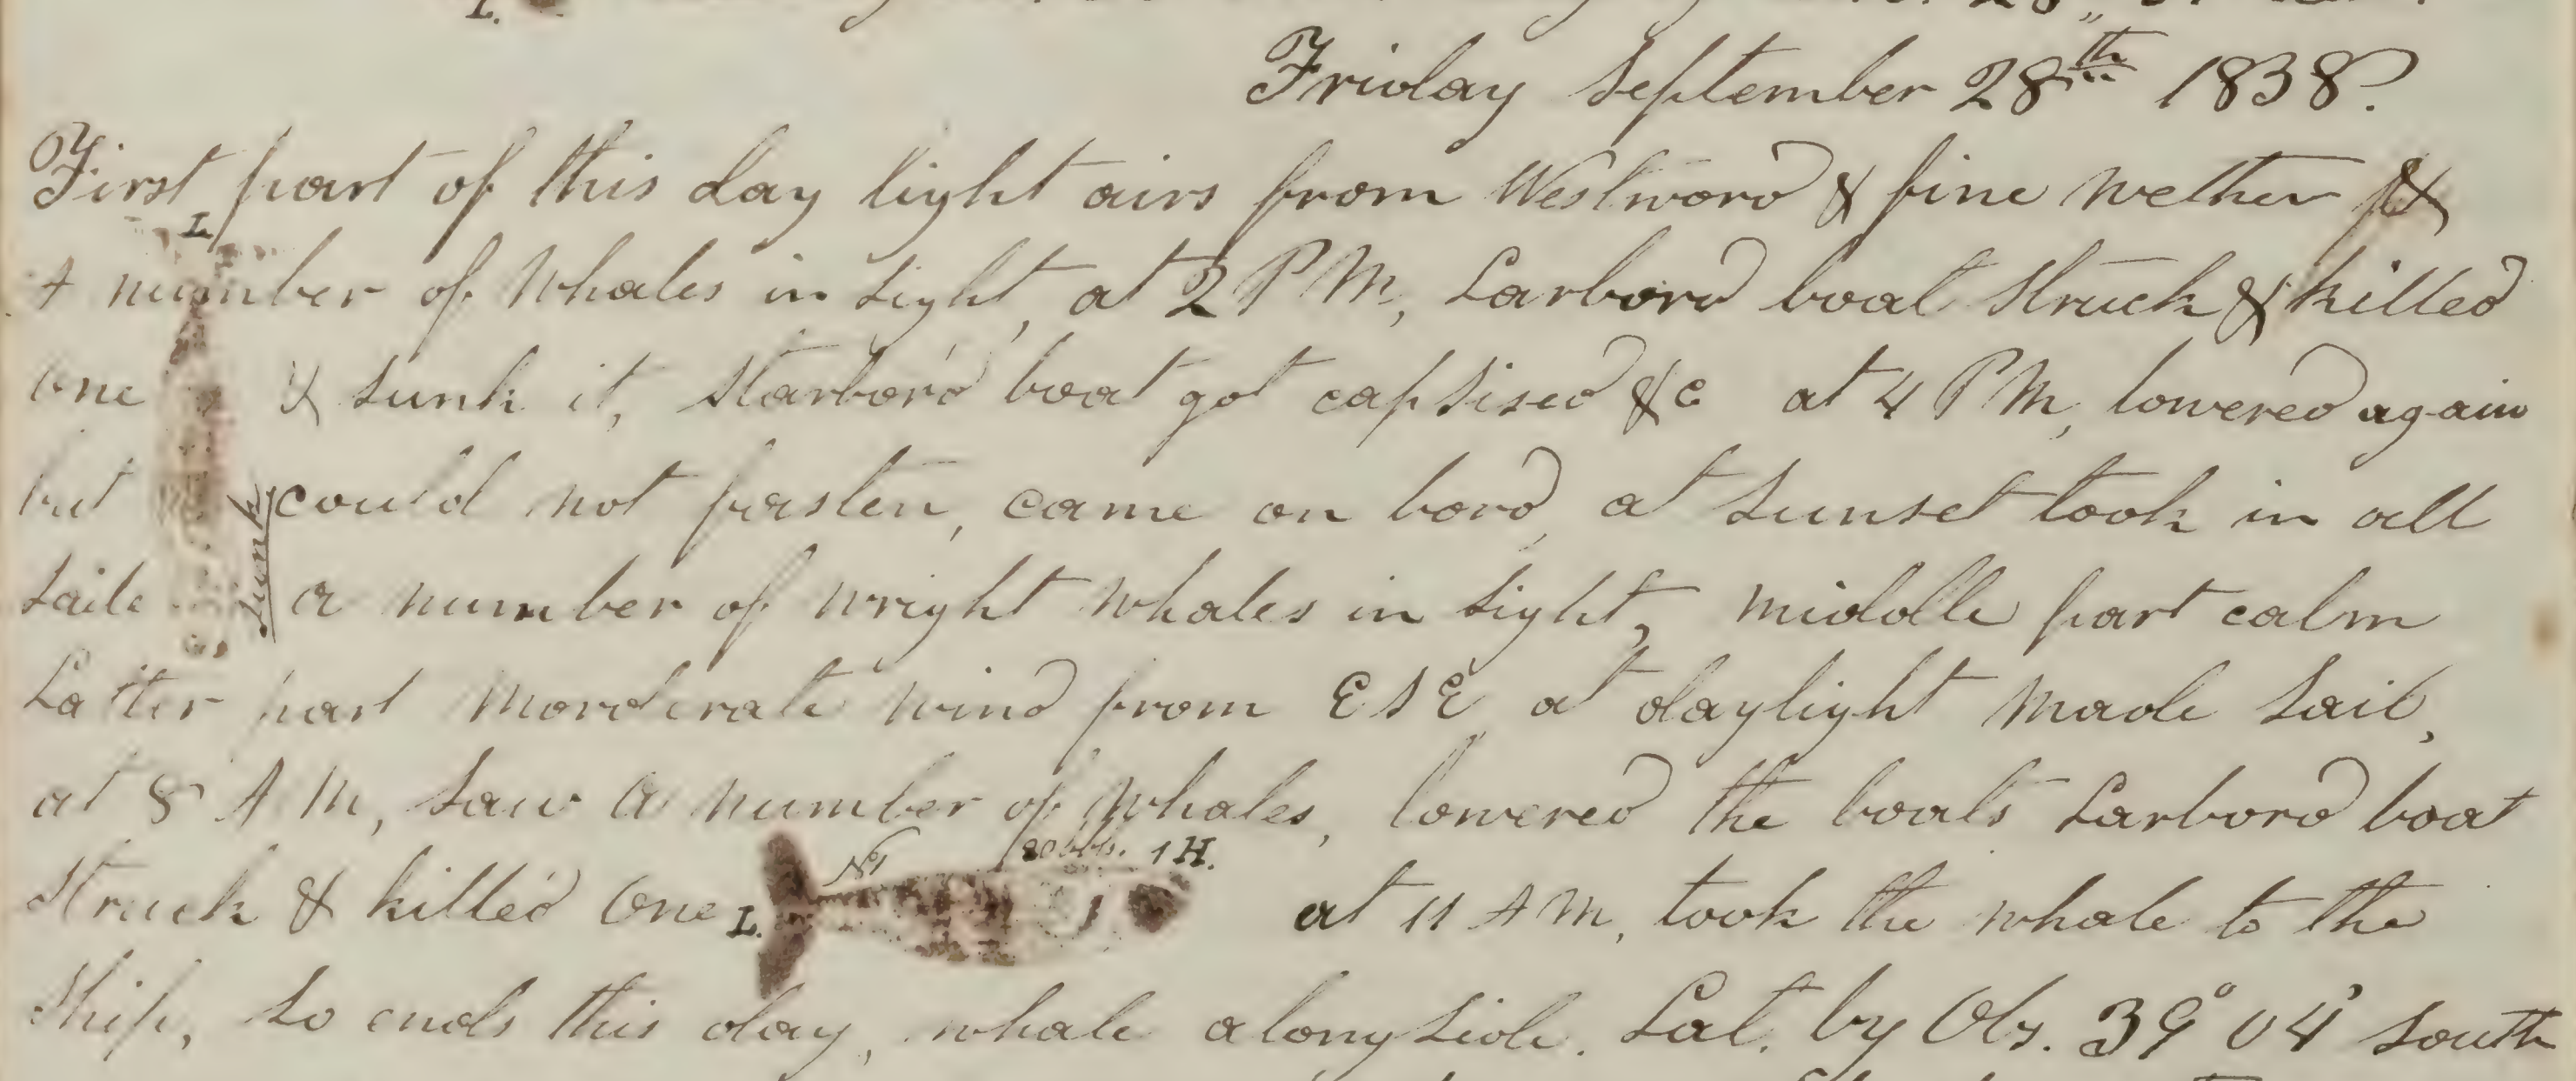 Friday September 28th 1838.
First part of this day light airs from Westword & fine wether &
L.
A number of Whales in sight, at 2 PM, Larbord boat struck & killed
one & sunk it, starbord boat got capsised &c at 4 PM, lowered again
but could not fasten, came on bord, at sunset took in all
sunk
saile a number of wright whales in sight, middle part calm
Latter part morderate wind from ESE at daylight made sail,
at 8 AM, saw a number of whales, lowered the boats Larbord boat
80 bbls. 1 H.
struck & killed one L. at 11 AM, took the whale to the
ship, so ends this day, whale alongside. Lat. by Obs. 39° 04' South